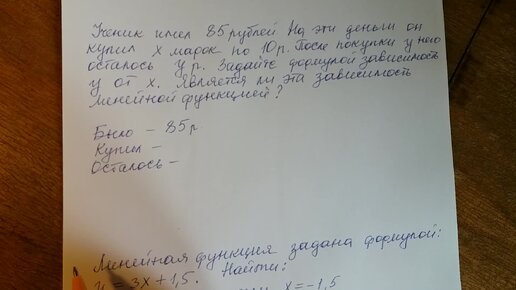 Ученик имел 85 рублей На эти деньги он
купил x марок по 10 р. После покупки у него
осталось y р. Задайте формулой зависимость
y от x. Является ли эта зависимость
линейной функцией?
Было – 85 р
Купил –
Осталось –
Линейная функция задана формулой:
y = 3x + 1,5. Найти:
x = -1,5